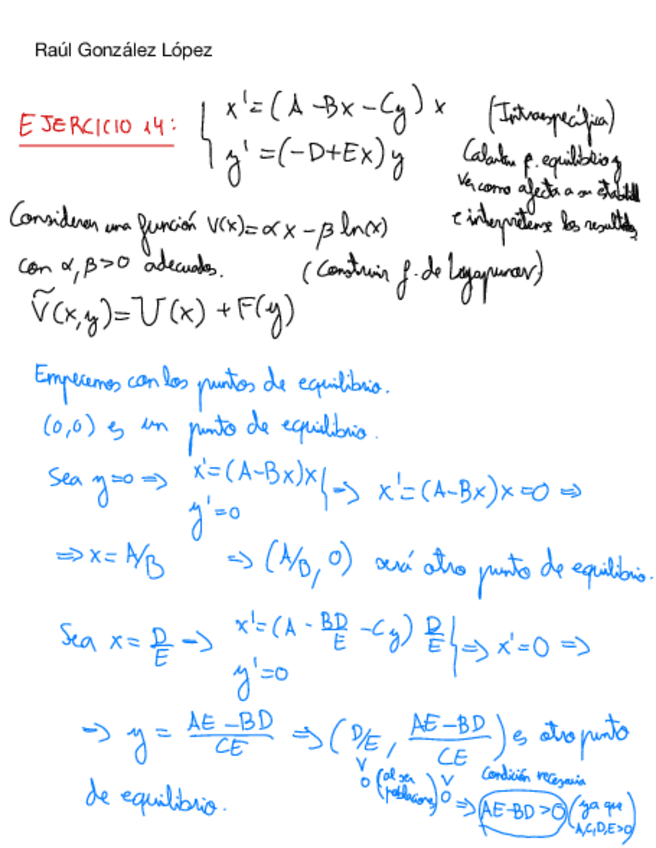 Raúl González López
EJERCICIO 14: { x'=(A-Bx-Cy)x (Intraespecífica)
y'=(-D+Ex)y Calcular p. equilibrio y
ver como afecta a su estabilidad
Considerar una función V(x)=αx-β ln(x) e interprétense los resultados
con α,β>0 adecuados. (Construir f. de Lyapunov)
Ṽ(x,y)=U(x)+F(y)
Empecemos con los puntos de equilibrio.
(0,0) es un punto de equilibrio.
Sea y=0 => x'=(A-Bx)x } => x'=(A-Bx)x=0 =>
y'=0
=> x=A/B => (A/B, 0) será otro punto de equilibrio.
Sea x=D/E => x'=(A-BD/E-Cy)D/E } => x'=0 =>
y'=0
=> y=(AE-BD)/CE => (D/E, (AE-BD)/CE) es otro punto
de equilibrio. v 0 (al ser poblaciones) v 0 condición necesaria => AE-BD>0 (ya que A,C,D,E>0)